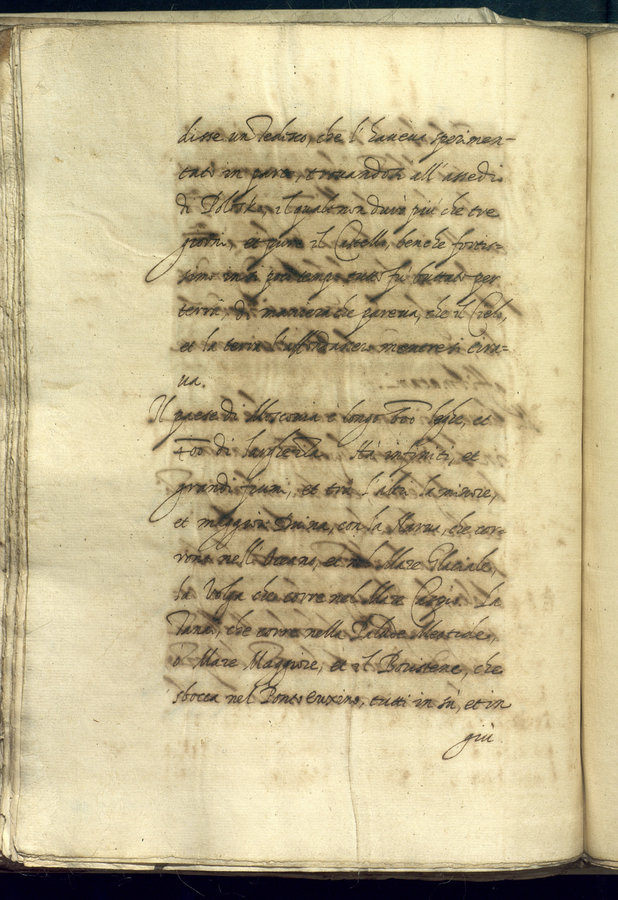 disse un Tedesco, che l'haveva sperimen-
tato in parte, trovandosi all'assedio
di Poloska, il quale non durò più che tre
giorni, et pure il Castello, benche fortis-
simo in si poco tempo tutto fu buttato per
terra, di maniera che pareva, che il Cielo,
et la terra mentre si tira-
va.
Il paese di Moscovia è longo 600 leghe, et
400 di larghezza. Ha infiniti, et
grandi fiumi, et trà l'altri la minore,
et maggior Duina, con la Narva, che cor-
rono nell'Oceano, et nel Mare Glaciale,
la Volga che corre nel Mare Caspio. La
Tana, che corre nella Palude Meotide,
ò Mare Maggiore, et il Boristene, che
sbocca nel Ponto Euxino, tutti in sù, et in
giù